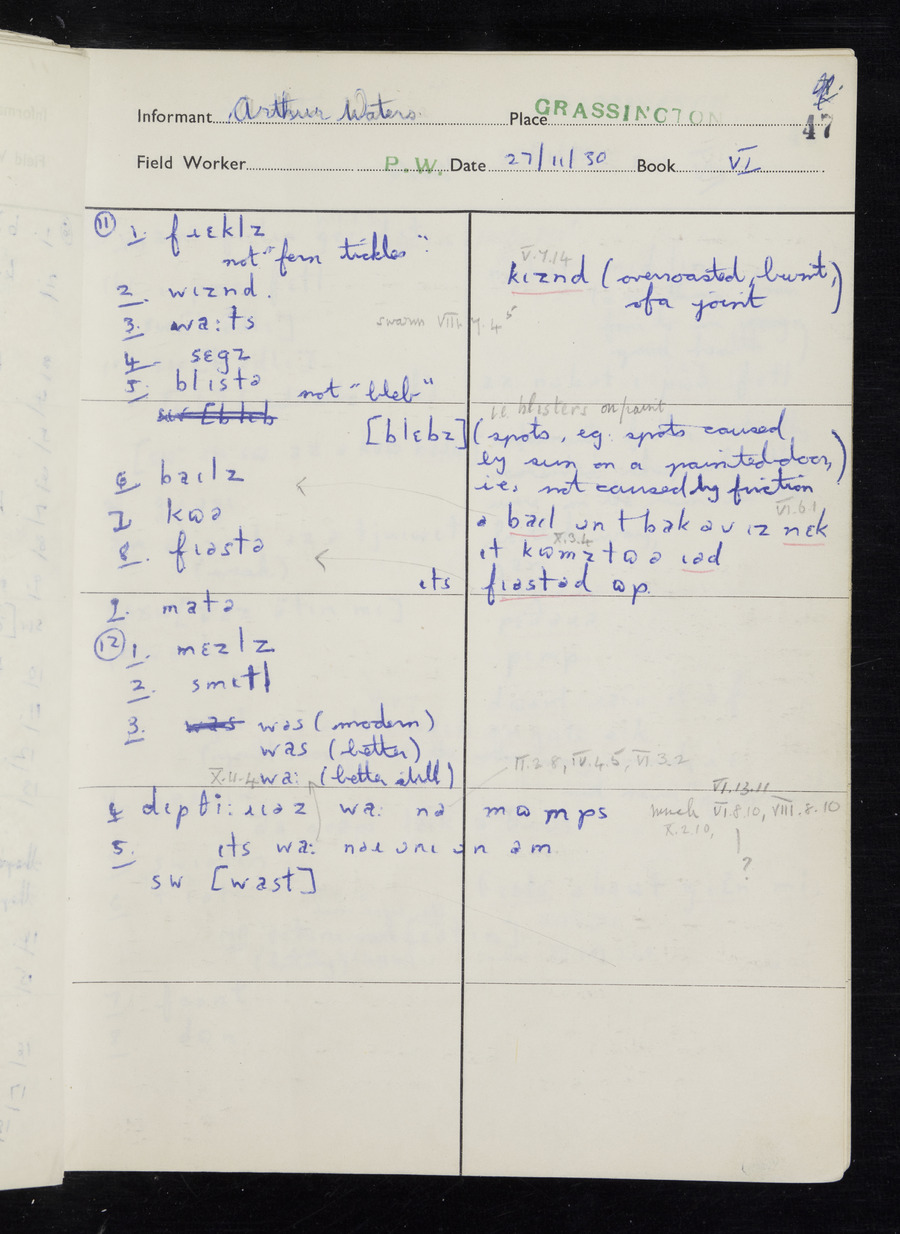 Informant Arthur Waters Place GRASSINGTON
47
Field Worker P.W. Date 27/11/30 Book VI
11 1. fɹɛklz
not "fern tickles".
V.7.14
kɪznd (overroasted, burnt,
of a joint)
2. wɪznd.
3. wa:ts
swarm VIII.7.4 5
4 sɛgz
5. blɪstə not "bleb"
i.e. blisters on paint
[blɛbz] (spots, eg. spots caused
by sun on a painted door,
i.e. not caused by friction)
6. baɪlz
VI.6.1
ə baɪl ɒn t bak əv ɪz nɛk
7. kωə
X.3.4
ɪt kωmz tω ə ɪəd
8. fɪəstə
ɪts fɪəstəd ωp.
9. matə
12 1. mɛzlz
2. smɪtl
3. was wəs (modern)
was (better)
X.11.4 wa: (better still)
II.2 8, IV.4.5, VI.3.2
VI.13.11
4 dɪpθi:ɹɪəz wa: nə mωmps
much VI.8.10, VIII.8.10
X.2.10,
5. ɪts wa: nəɪ ɒnɪ ɒn əm
?
sw [wast]